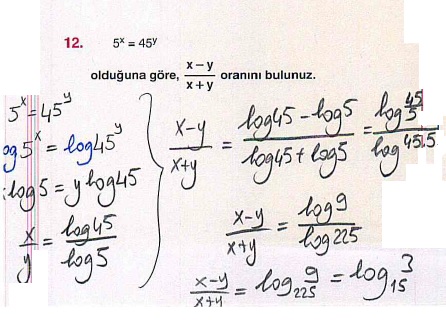 12. 5ˣ = 45ʸ
olduğuna göre, (x – y)/(x + y) oranını bulunuz.
5ˣ = 45ʸ
og5ˣ = log45ʸ
log5 = y log45
x/y = log45/log5
(x-y)/(x+y) = (log45 - log5)/(log45 + log5) = log(45/5)/log45.5
(x-y)/(x+y) = log9/log225
(x-y)/(x+y) = log₂₂₅ 9 = log₁₅ 3